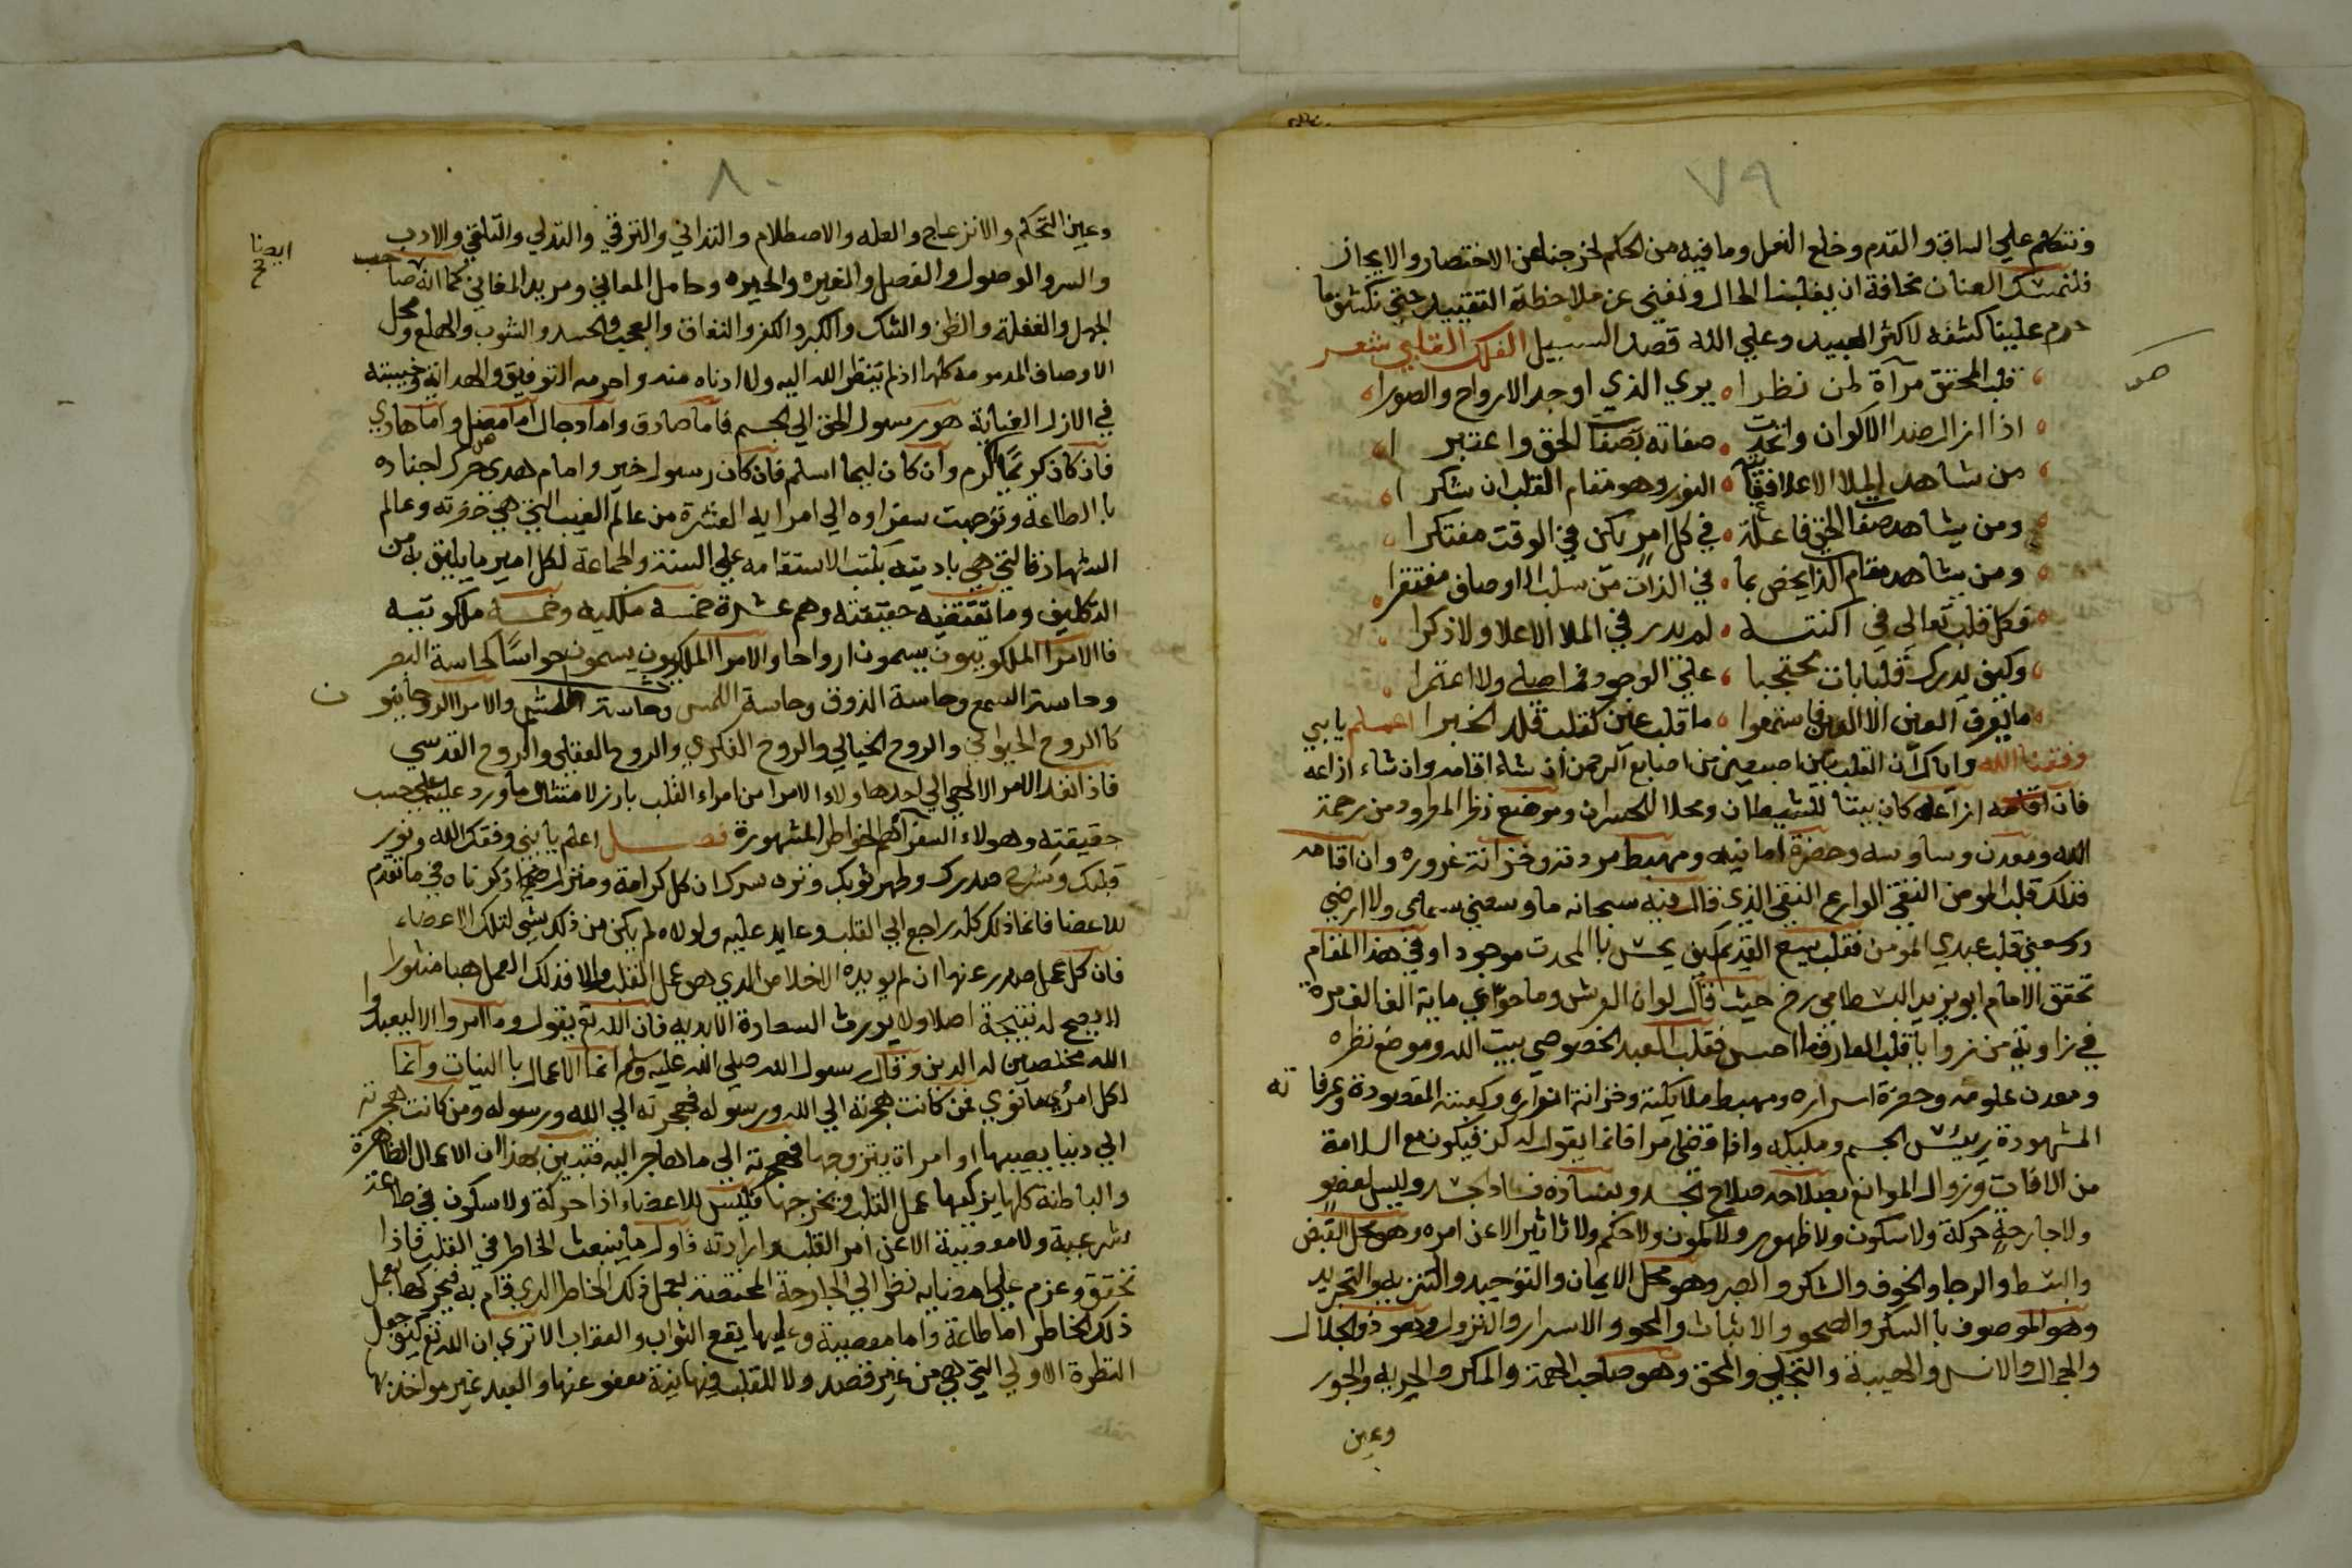 ٧٩
ونتكلم علي الساق والقدم وخلع النعل وما فيه من الحكم لخرجنا عن الاختصار والايجاز
فلنمسك العنان مخافة ان يغلبنا الحال ونفني عن ملاحظة التقييد حتي نكشف ما
حرم علينا كشفه لاكثر العبيد وعلي الله قصد السبيل الفلك القلبي شعر
قلب المحقق مرآة لمن نظرا يري الذي اوجد الارواح والصورا
اذا ازال صدا الاكوان واتحدت صفاته بصفات الحق واعتبرا
من شاهد الملا الاعلا فقبلته النور وهو مقام القلب ان شكرا
ومن يشاهد صفات الحق فاعلة في كل امر يكن في الوقت مفتكرا
ومن يشاهد مقام الذات يحض بما في الذات من سلب الاوصاف مفتقرا
فكل قلب تعالي في اكنته لم يدر في الملا الاعلا ولا ذكرا
وكيف يدرك قلب بات محتجبا علي الوجود في اصل ولا اعتمرا
ما يعرف العين الا العين فاستمعوا ما قلب عين كقلب قلد الخبرا اعلم يا بني
وفقنا الله واياك ان القلب بين اصبعين من اصابع الرحمن ان شاء اقامه وان شاء ازاغه
فان اقامه ازاغه كان بيتا للشيطان ومحلا للخسران وموضع نظر المطرود من رحمة
الله ومعدن وساوسه وحضرة امانيه ومهبط مردته وخزانة غروره وان اقامه
فذلك قلب المومن التقي الوارع النقي الذي قال فيه سبحانه ما وسعني سمائي ولا ارضي
ووسعني قلب عبدي المومن فقلب يسع القديم كيف يحس بالمحدث موجودا وفي هذا المقام
تحقق الامام ابو يزيد البسطامي رض حيث قال لو ان العرش وما حواي ماية الف الف مرة
في زاوية من زوايا قلب العارف ما احس فقلب العبد الخصوصي بيت الله وموضع نظره
ومعدن علومه وحضرة اسراره ومهبط ملايكته وخزانة انواره وكعبته المقصودة وعرفاته
المشهودة رييس الجسم ومليكه واذا قضي امرا فانما يقول له كن فيكون مع السلامة
من الافات وزوال الموانع بصلاحه صلاح الجسد وبفساده فساد الجسد وليس لعضو
ولا جارحة حركة ولا سكون ولا ظهور ولا كمون ولا حكم ولا تاثير الا عن امره وهو محل القبض
والبسط والرجا والخوف والشكر والصبر وهو محل الايمان والتوحيد والتنزيه والتجريد
وهو الموصوف بالسكر والصحو والاثبات والمحو والاسرار والنزول وهو ذو الجلال
والجمال والانس والهيبة والتجلي والمحق وهو صاحب الهمة والمكر والحريه والجور
وعين
صر
٨٠
وعين التحكم والانزعاج والعله والاصطلام والتداني والترقي والتدلي والتلقي والادب
والسر والوصول والفصل والغيره والحيره وحامل المعاني ومريد المغاني كما انه صاحب
الجهل والغفلة والظن والشك والكبر والكفر والنفاق والعجب والحسد والشوب والهلع ومحل
الاوصاف المذمومة كلها اذ لم ينظر الله اليه ولا ادناه منه واحرمه التوفيق والهداية وخيبته
في الازل العناية هو رسول الحق الي الجسم فاما صادق واما دجال اما مضل واما هادي
فان كان كريما اكرم وان كان ليما اسلم فان كان رسول خير وامام هدي حرك اجناده
بالطاعة وتوجهت سفراوه الي امرايه العشرة من عالم الغيب التي هي حضرته وعالم
الشهادة التي هي باديته بكتب الاستقامه علي السنة والجماعة لكل امير ما يليق به من
التكليف وما تقتضيه حقيقته وهم عشرة خمسة ملكيه وخمسة ملكوتيه
فالامرا الملكوتيون يسمون ارواحا والامرا الملكيون يسمون حواسا كحاسة البصر
وحاسة السمع وحاسة الذوق وحاسة اللمس وحاسة الشم والامرا الروحانيون
كالروح الحيواني والروح الخيالي والروح الفكري والروح العقلي والروح القدسي
فاذا نفذ الامر الالهي الي احد هاولاء الامرا من امراء القلب بادر لامتثال ما ورد عليه علي حسب
حقيقته وهولاء السفرا هم الخواطر المشهورة فصل اعلم يا بني وفقك الله ونور
قلبك وشرح صدرك وطهر ثوبك ونزه سرك ان كل كرامة ومنزل ذكرناه في ما تقدم
للاعضا فانما ذلك كله راجع الي القلب وعايد عليه ولولاه لم يكن من ذلك شي لتلك الاعضاء
فان كل عمل صدر عنها ان لم يويده الاخلاص الذي هو عمل القلب والا فذلك العمل هبا منثورا
لا يصح له نتيجة اصلا ولا يورث السعادة الابديه فان الله تع يقول وما امروا الا ليعبدوا
الله مخلصين له الدين وقال رسول الله صلي الله عليه وسلم انما الاعمال بالنيات وانما
لكل امرئ ما نوي فمن كانت هجرته الي الله ورسوله فهجرته الي الله ورسوله ومن كانت هجرته
الي دنيا يصيبها او امراة يتزوجها فهجرته الي ما هاجر اليه فتبين بهذا ان الاعمال الظاهرة
والباطنة كلها يزكيها عمل القلب ويخرجها فليس للاعضاء اذا حركة ولا سكون في طاعة
شرعية ولا معصية الا عن امر القلب وارادته فاول ما ينبعث الخاطر في القلب فاذا
تحقق وعزم علي امضايه نظر الي الجارحة المختصة بعمل ذلك الخاطر الذي قام به فيحركها بعمل
ذلك الخاطر اما طاعة واما معصية وعليها يقع الثواب والعقاب الا تري ان الله تع كيف جعل
النظرة الاولي التي هي من غير قصد ولا للقلب فيها نية معفو عنها والعبد غير مواخذ بها
ايضا